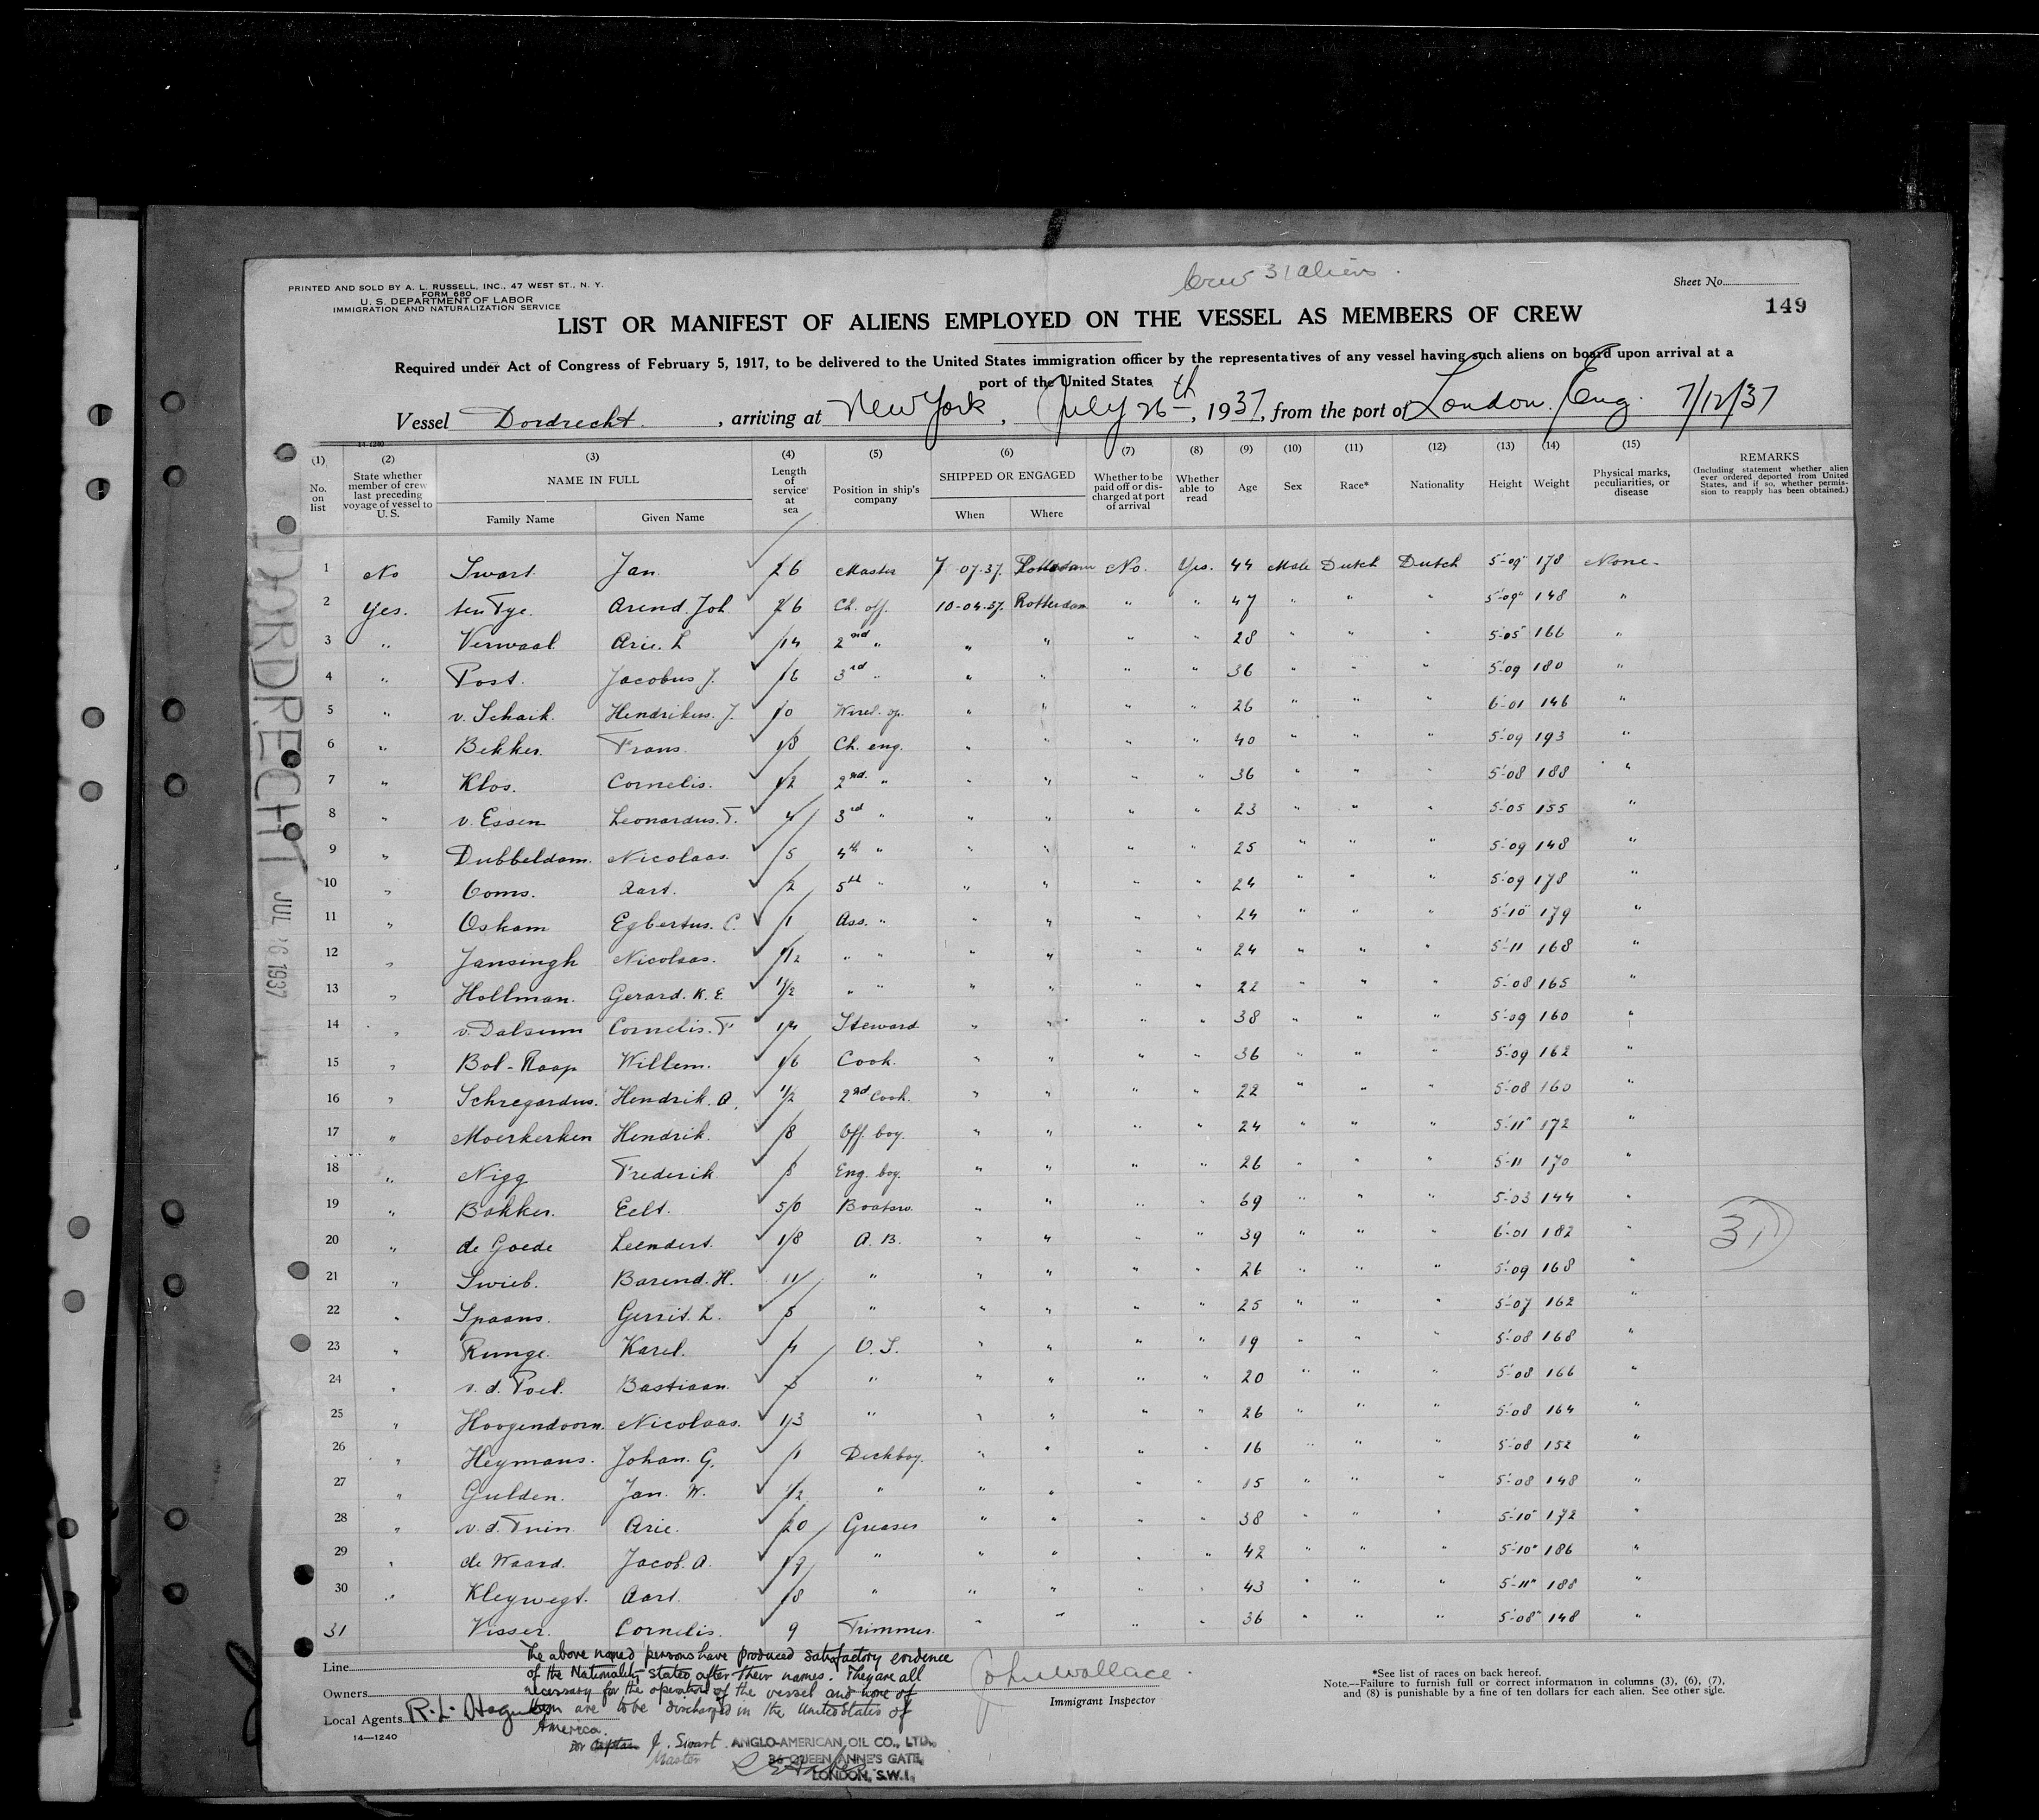 Crew 31 aliens.
PRINTED AND SOLD BY A. L. RUSSELL, INC., 47 WEST ST., N. Y.
FORM 680
U. S. DEPARTMENT OF LABOR
IMMIGRATION AND NATURALIZATION SERVICE
Sheet No.
149
LIST OR MANIFEST OF ALIENS EMPLOYED ON THE VESSEL AS MEMBERS OF CREW
Required under Act of Congress of February 5, 1917, to be delivered to the United States immigration officer by the representatives of any vessel having such aliens on board upon arrival at a
port of the United States
Vessel Dordrecht., arriving at New York, July 26th, 1937, from the port of London. Eng. 7/12/37
14-1240
(1) (2) (3) (4) (5) (6) (7) (8) (9) (10) (11) (12) (13) (14) (15)
No. on list
State whether member of crew last preceding voyage of vessel to U. S.
NAME IN FULL
Family Name Given Name
Length of service at sea
Position in ship's company
SHIPPED OR ENGAGED
When Where
Whether to be paid off or discharged at port of arrival
Whether able to read
Age Sex Race* Nationality Height Weight
Physical marks, peculiarities, or disease
REMARKS
(Including statement whether alien ever ordered deported from United States, and if so, whether permission to reapply has been obtained.)
1 No Swart. Jan. 26 Master 7-07-37. Rotterdam No. Yes. 44 Male Dutch Dutch 5'-09" 178 None.
2 Yes. ten Tye. Arend. Joh. 26 Ch. off. 10-04-37. Rotterdam " " 47 " " " 5'-09" 148 "
3 " Verwaal Arie. L 14 2nd " " " " " 28 " " " 5'-05" 166 "
4 " Post. Jacobus J. 16 3rd " " " " " 36 " " " 5'-09 180 "
5 " v. Schaik. Hendrikus. J. 10 Wirel. op. " " " " 26 " " " 6'-01 146 "
6 " Bekker. Frans. 18 Ch. eng. " " " " 40 " " " 5'-09 193 "
7 " Klos. Cornelis. 12 2nd. " " " " " 36 " " " 5'-08 188 "
8 " v. Essen Leonardus. T. 4 3rd " " " " " 23 " " " 5'-05 155 "
9 " Dubbeldam. Nicolaas. 5 4th " " " " " 25 " " " 5'-09 148 "
10 " Ooms. Aart. 2 5th " " " " " 24 " " " 5'-09 178 "
11 " Oskam Egbertus. C. 1 Ass. " " " " " 24 " " " 5'-10" 179 "
12 " Jansingh Nicolaas. 1/2 " " " " " " 24 " " " 5'-11 168 "
13 " Hollman. Gerard. K. E. 1/2 " " " " " " 22 " " " 5'-08 165 "
14 " v. Dalsum Cornelis. T. 14 Steward " " " " 38 " " " 5'-09 160 "
15 " Bol-Raap Willem. 16 Cook. " " " " 36 " " " 5'-09 162 "
16 " Schregardus. Hendrik. A. 1/2 2nd Cook. " " " " 22 " " " 5'-08 160 "
17 " Moerkerken Hendrik. 8 Off. boy. " " " " 24 " " " 5'-11" 172 "
18 " Nigg Frederik Eng. boy. " " " " 26 " " " 5'-11 170 "
19 " Bakker. Eelt. 50 Boatsw. " " " " 69 " " " 5'-03 144 "
20 " de Goede Leendert. 18 A. B. " " " " 39 " " " 6'-01 182 "
31
21 " Swieb. Barend. H. 11 " " " " " 26 " " " 5'-09 168 "
22 " Spaans. Gerrit. L. " " " " " 25 " " " 5'-07 162 "
23 " Runge. Karel. 4 O. S. " " " " 19 " " " 5'-08 168 "
24 " v. d. Poel. Bastiaan. " " " " " 20 " " " 5'-08 166 "
25 " Hoogendoorn. Nicolaas. 13 " " " " " 26 " " " 5'-08 164 "
26 " Heymans. Johan. G. 1 Deckboy. " " " " 16 " " " 5'-08 152 "
27 " Gulden. Jan. W. 1/2 " " " " " 15 " " " 5'-08 148 "
28 " v. d. Tuin. Arie. 20 Greaser " " " " 38 " " " 5'-10" 172 "
29 " de Waard. Jacob. A. " " " " " 42 " " " 5'-10" 186 "
30 " Kleywegt. Aart. 18 " " " " " 43 " " " 5'-11" 188 "
31 Visser. Cornelis. 9 Trimmer. " " " " 36 " " " 5'-08" 148 "
DORDRECHT JUL 26 1937
The above named persons have produced satisfactory evidence
of the Nationality stated after their names. They are all
necessary for the operation of the vessel and none of
them are to be discharged in the United States of
America.
Line
Owners
Local Agents R. L.
14—1240
for Captain J. Swart
Master
ANGLO-AMERICAN OIL CO., LTD.,
36 QUEEN ANNE'S GATE,
LONDON, S.W.1.
John Wallace.
Immigrant Inspector
*See list of races on back hereof.
Note.—Failure to furnish full or correct information in columns (3), (6), (7),
and (8) is punishable by a fine of ten dollars for each alien. See other side.